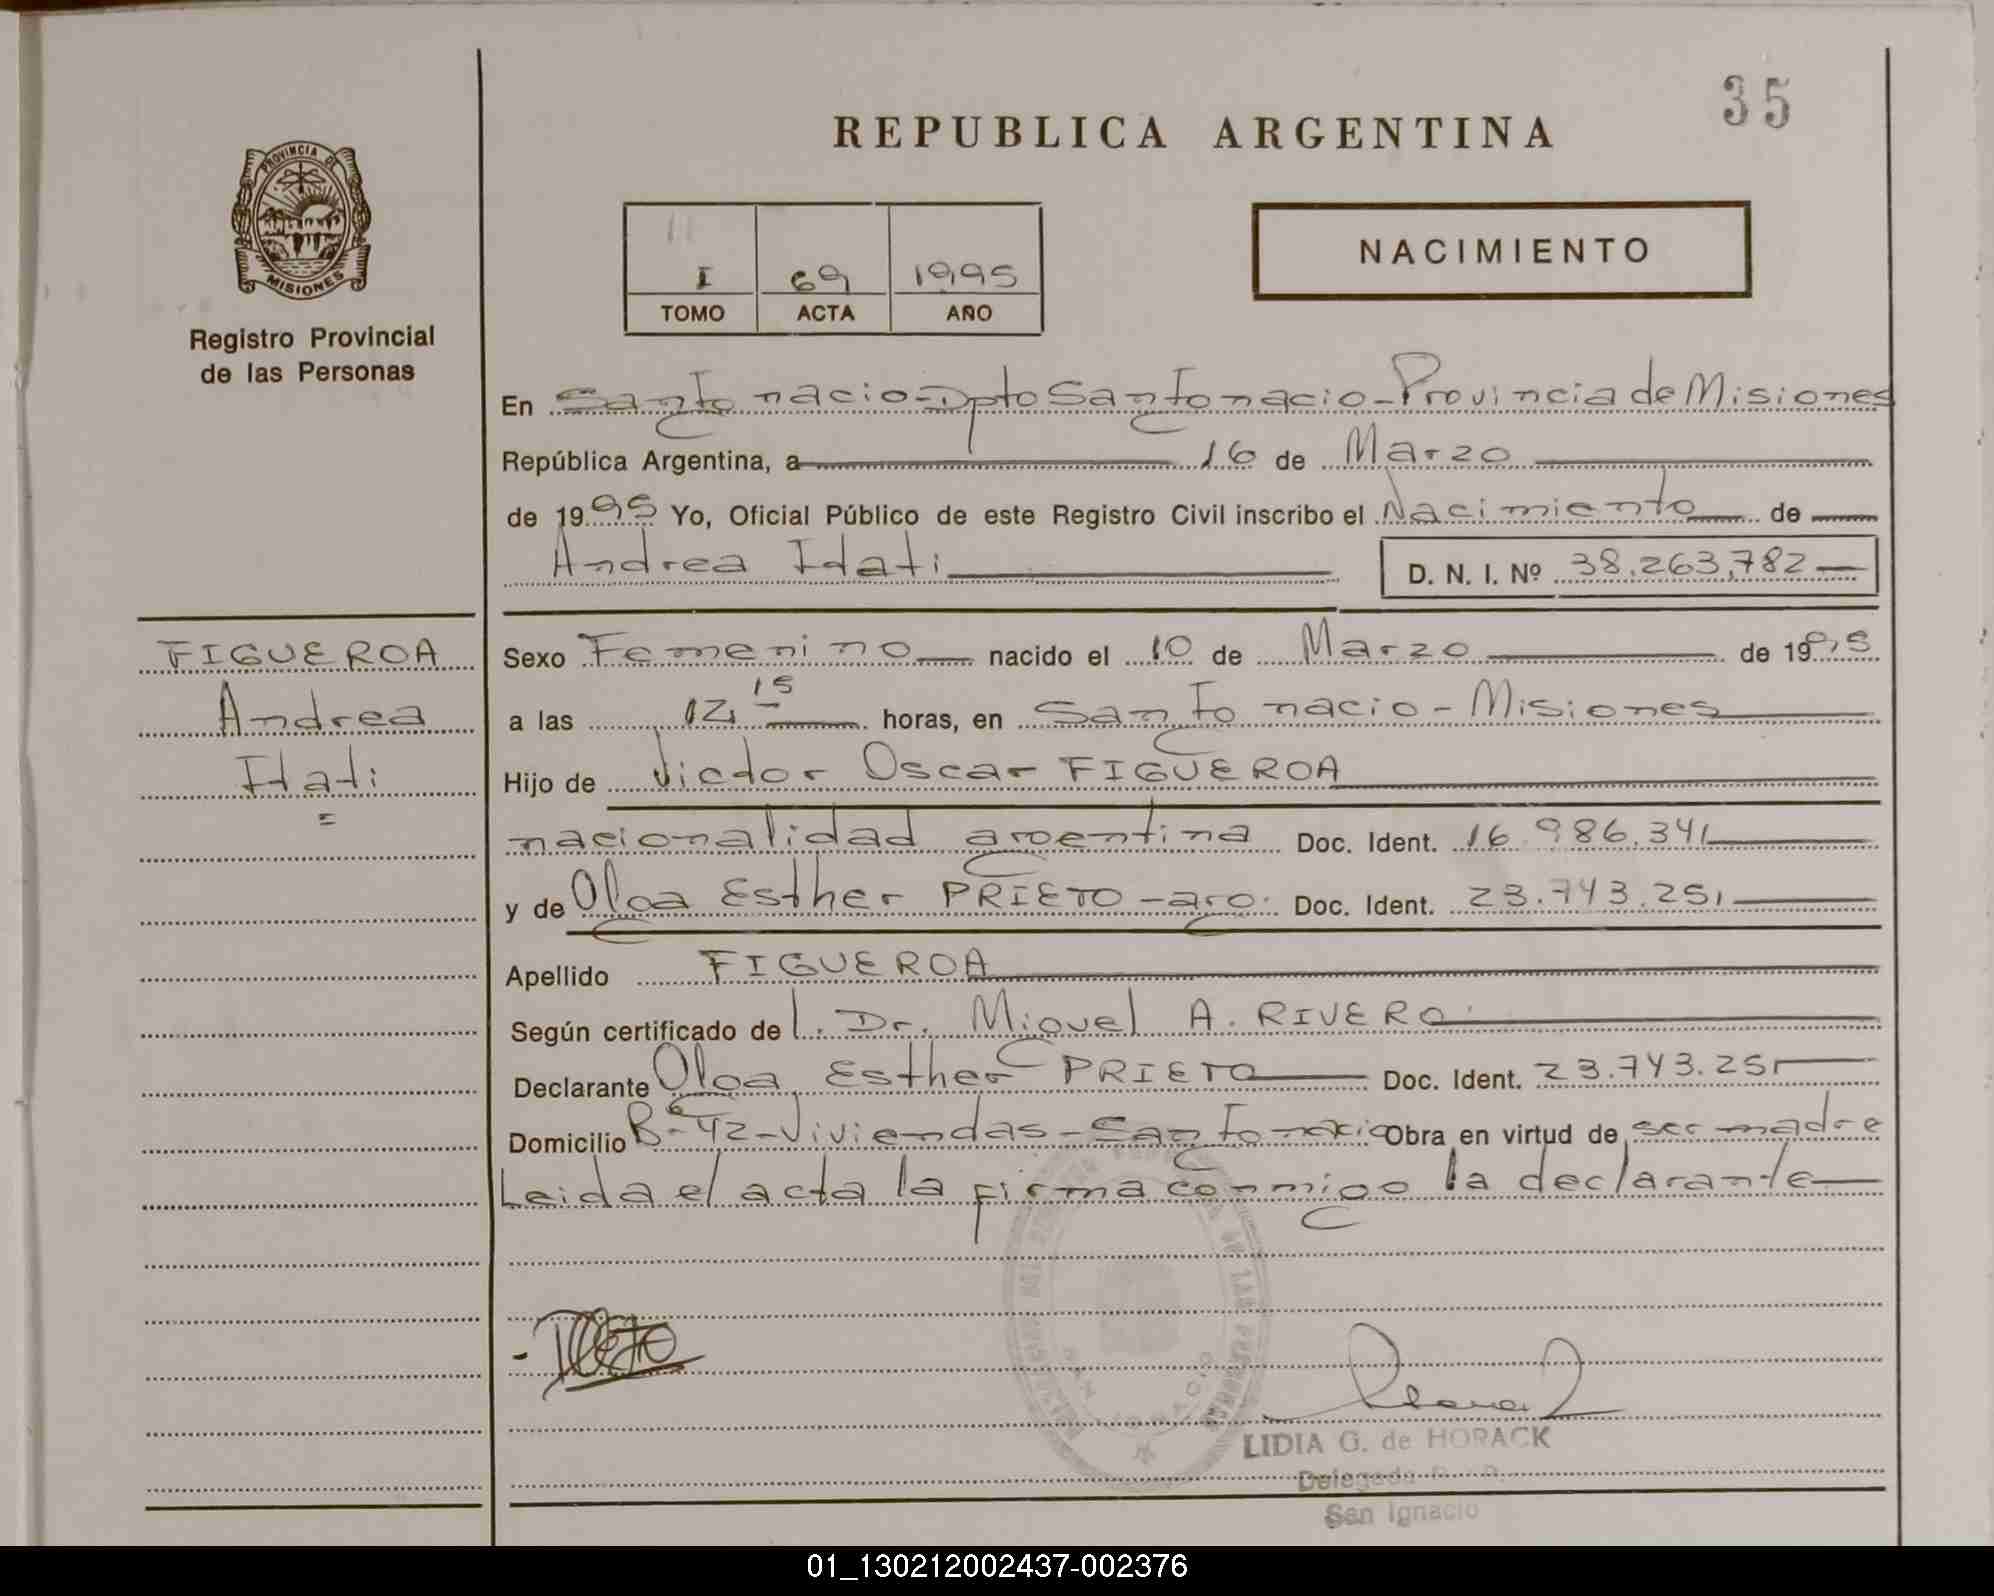 35
REPUBLICA ARGENTINA
PROVINCIA DE
MISIONES
Registro Provincial
de las Personas
I 69 1995
TOMO ACTA AÑO
NACIMIENTO
En San Ignacio - Dpto San Ignacio - Provincia de Misiones
República Argentina, a 16 de Marzo
de 1995 Yo, Oficial Público de este Registro Civil inscribo el Nacimiento de
Andrea Itati D. N. I. Nº 38.263.782
FIGUEROA
Andrea
Itati
=
Sexo Femenino nacido el 10 de Marzo de 1995
a las 12,15 horas, en San Ignacio - Misiones
Hijo de Victor Oscar FIGUEROA
nacionalidad argentina Doc. Ident. 16.986.341
y de Olga Esther PRIETO - arg. Doc. Ident. 23.743.251
Apellido FIGUEROA
Según certificado de l. Dr. Miguel A. RIVERO
Declarante Olga Esther PRIETO Doc. Ident. 23.743.251
Domicilio Bº 42 - Viviendas - San Ignacio Obra en virtud de ser madre
Leida el acta la firma conmigo la declarante
LIDIA G. de HORACK
Delegada
San Ignacio
01_130212002437-002376